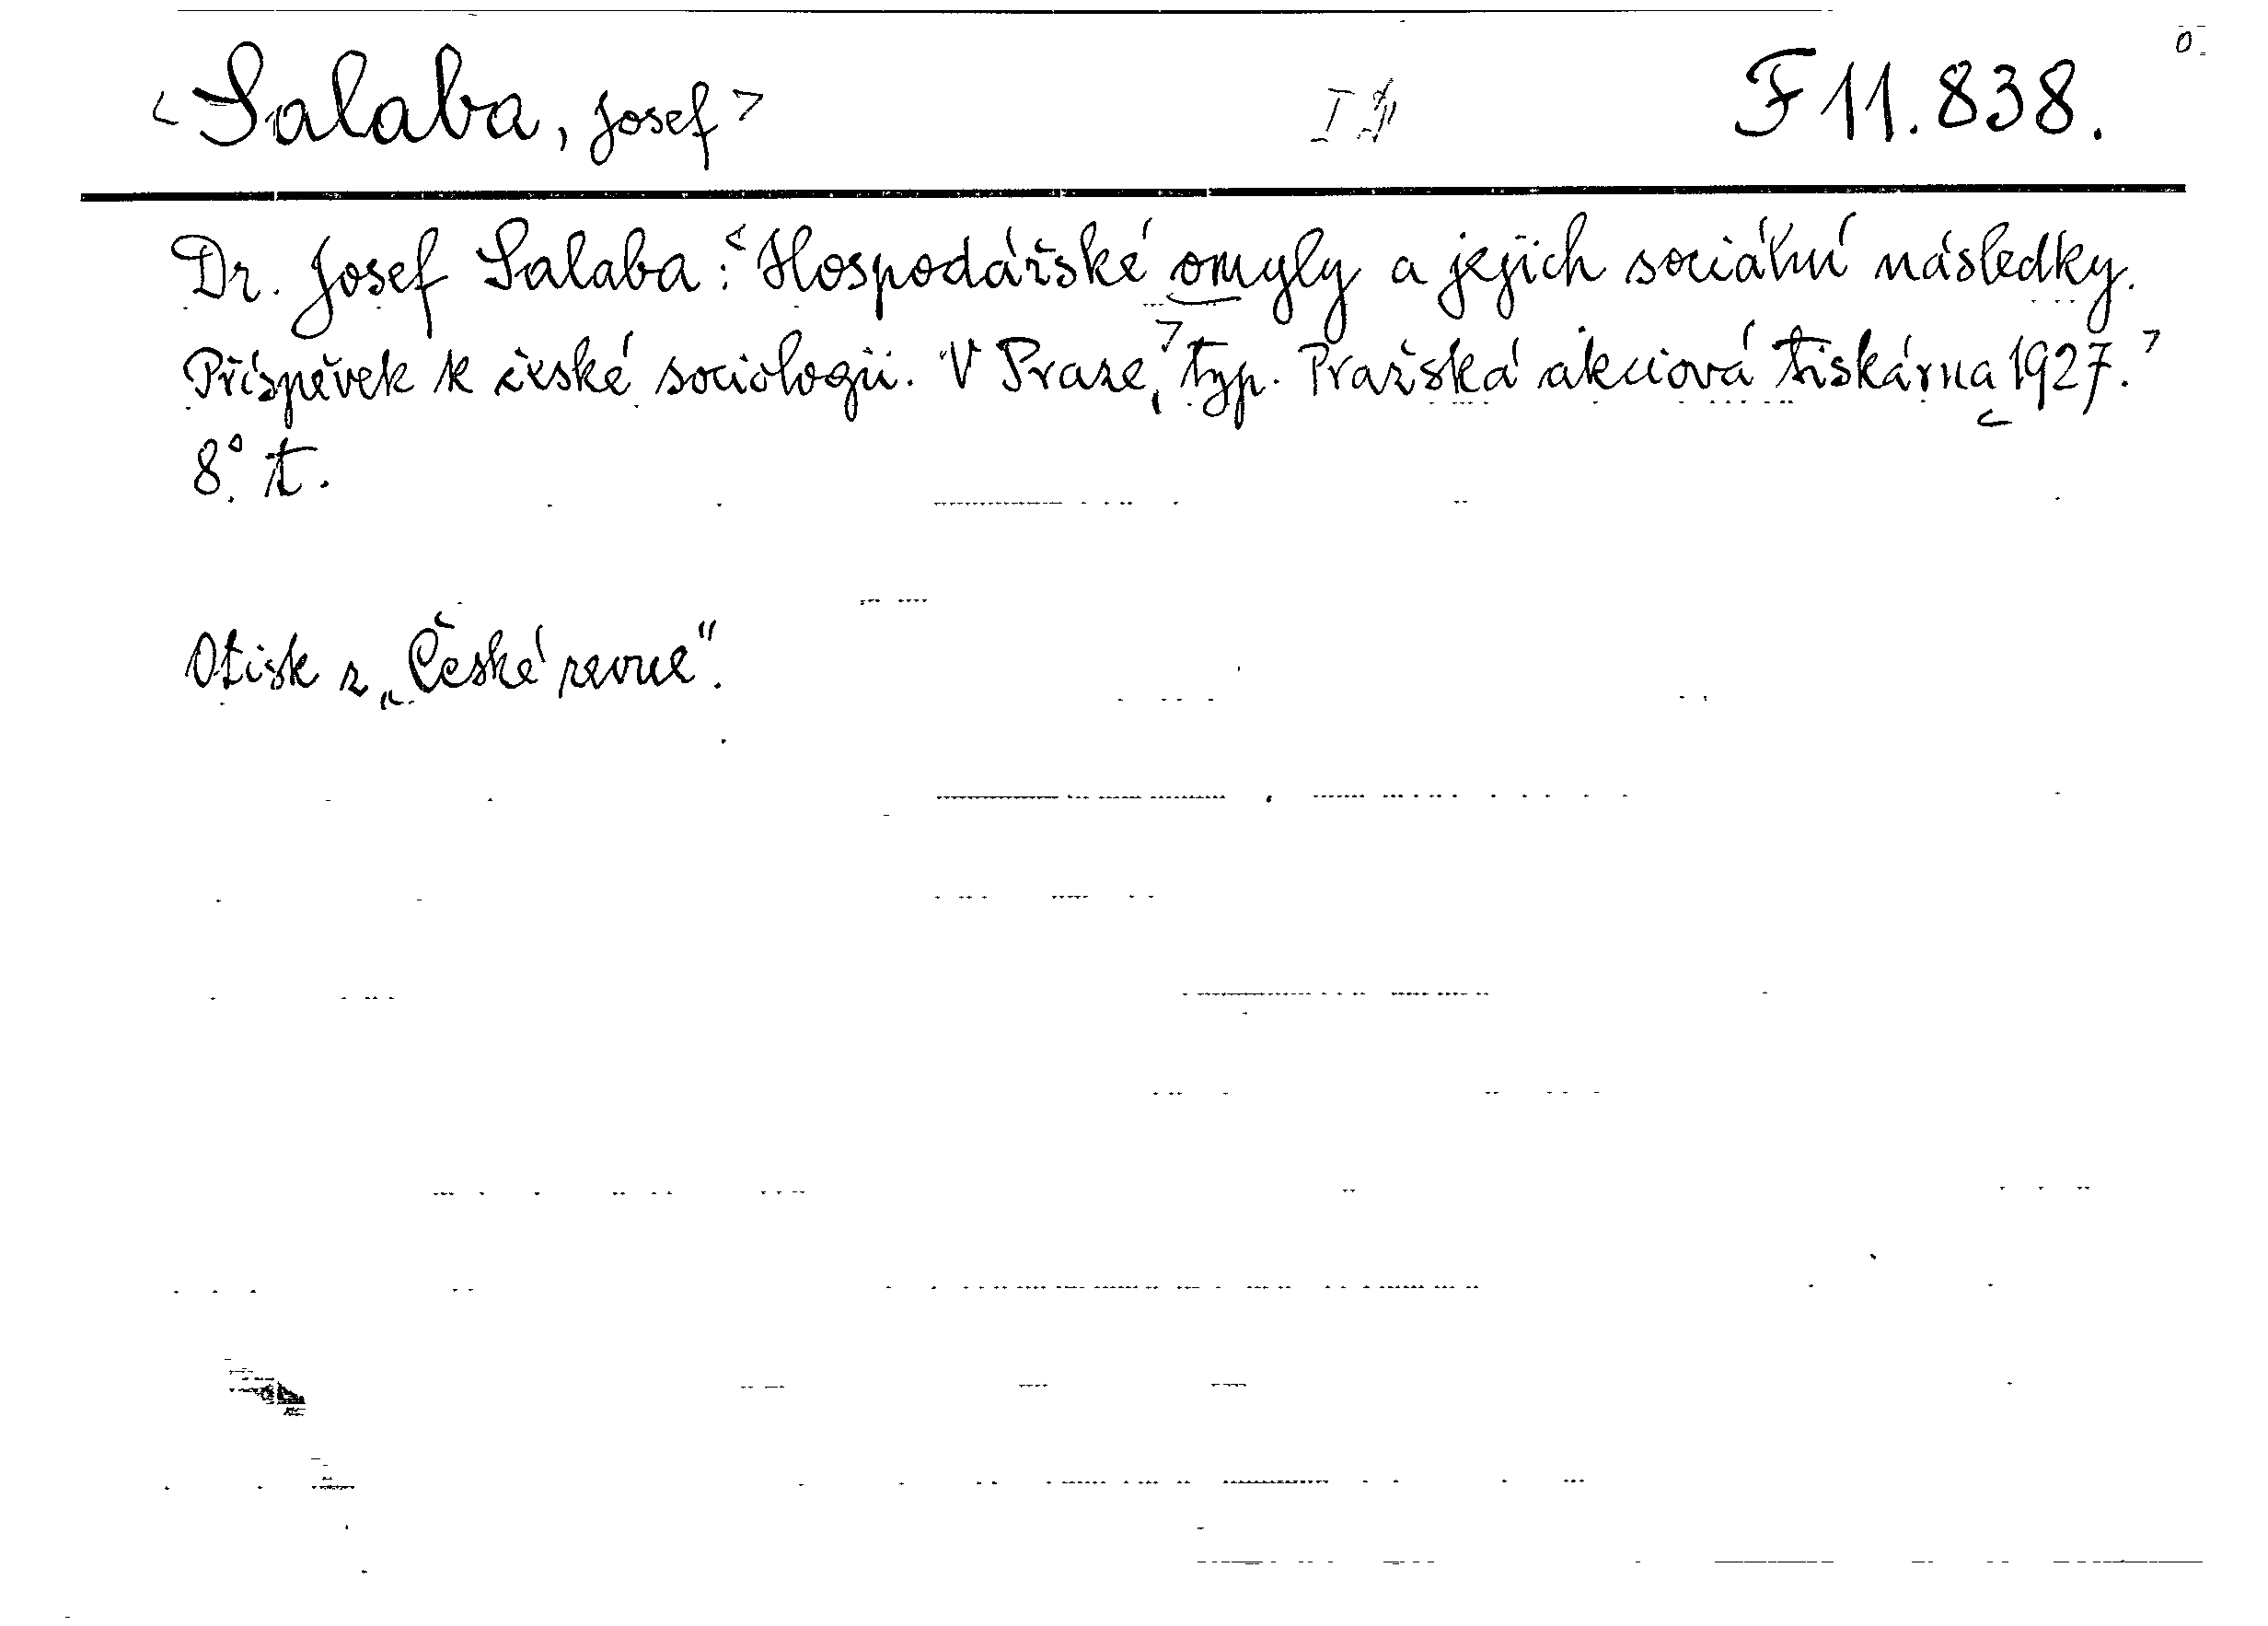 <Salaba, Josef> F 11.838.
Dr. Josef Salaba: <Hospodářské omyly a jejich sociální následky.
Příspěvek k české sociologii. V Praze,> typ. Pražská akciová tiskárna <1927.>
8° t.
Otisk z „České revue".